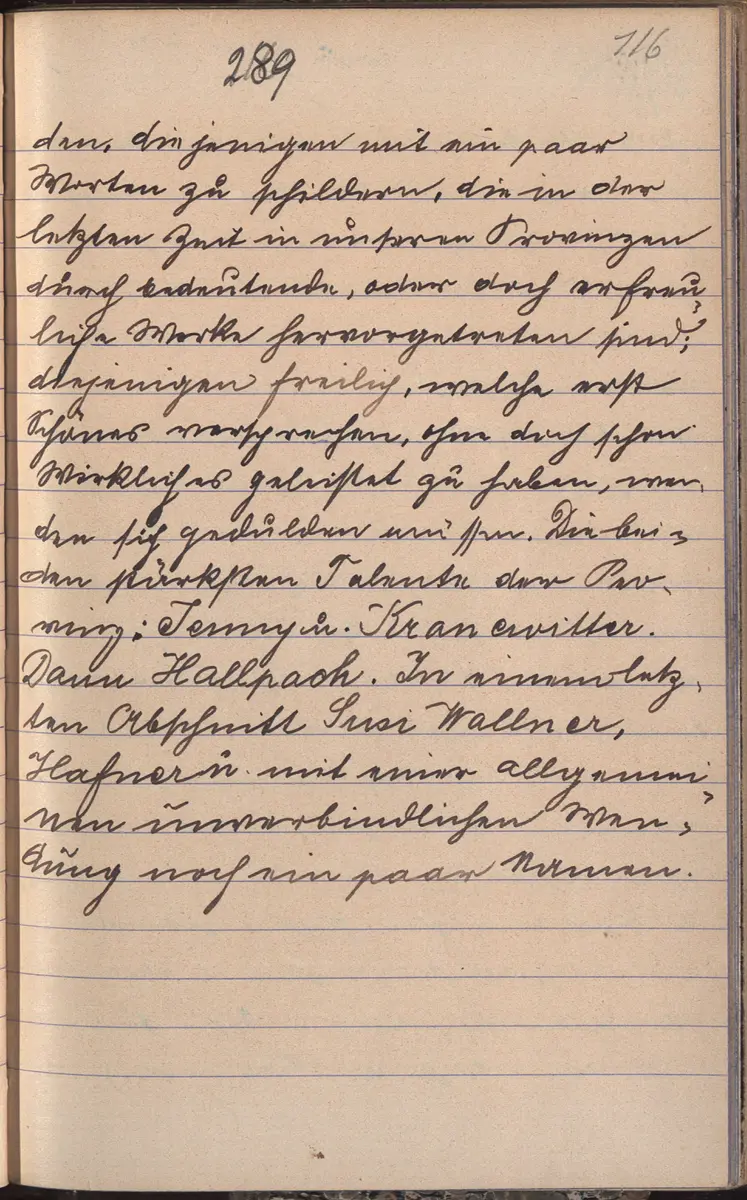 289
116
den, diejenigen mit ein paar
Worten zu schildern, die in der
letzten Zeit in unseren Provinzen
durch bedeutende, oder doch erfreu-
liche Werke hervorgetreten sind;
diejenigen freilich, welche erst
Schönes versprechen, ohne doch schon
Wirkliches geleistet zu haben, wer-
den sich gedulden müssen. Die bei-
den stärksten Talente der Pro-
vinz: Jenny u. Kranewitter.
Dann Hallpach. In einem letz-
ten Abschnitt Susi Wallner,
Hafner u. mit einer allgemei-
nen unverbindlichen Wen-
dung noch ein paar Namen.